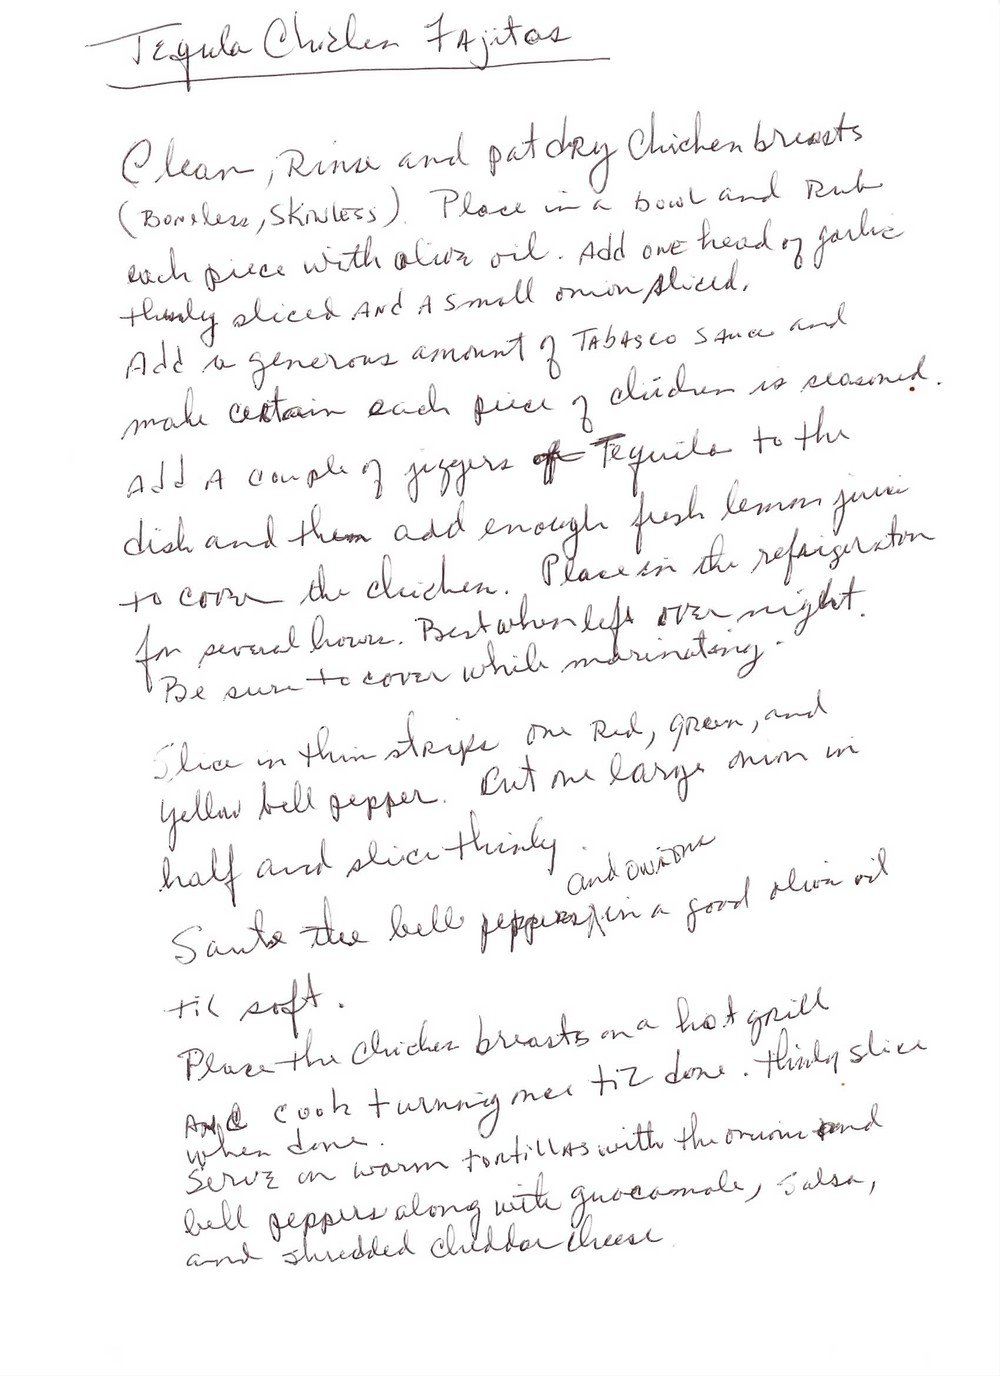 Tequla Chicken Fajitas
Clean, Rinse and pat dry Chicken breasts
(Boneless, Skinless). Place in a bowl and Rub
each piece with olive oil. Add one head of garlic
thinly sliced And A small onion sliced.
Add a generous amount of TABASCO sauce and
make certain each piece of chicken is seasoned.
Add A couple of jiggers of Tequila to the
dish and then add enough fresh lemon juice
to cover the chicken. Place in the refrigerator
for several hours. Best when left over night.
Be sure to cover while marinating.
Slice in thin strips one Red, green, and
yellow bell pepper. Cut one large onion in
half and slice thinly.
and onions
Saute the bell peppers in a good olive oil
til soft.
Place the chicken breasts on a hot grill
And cook turning once til done. thinly slice
when done.
Serve on warm tortillas with the onions and
bell peppers along with guacamole, salsa,
and shredded cheddar cheese